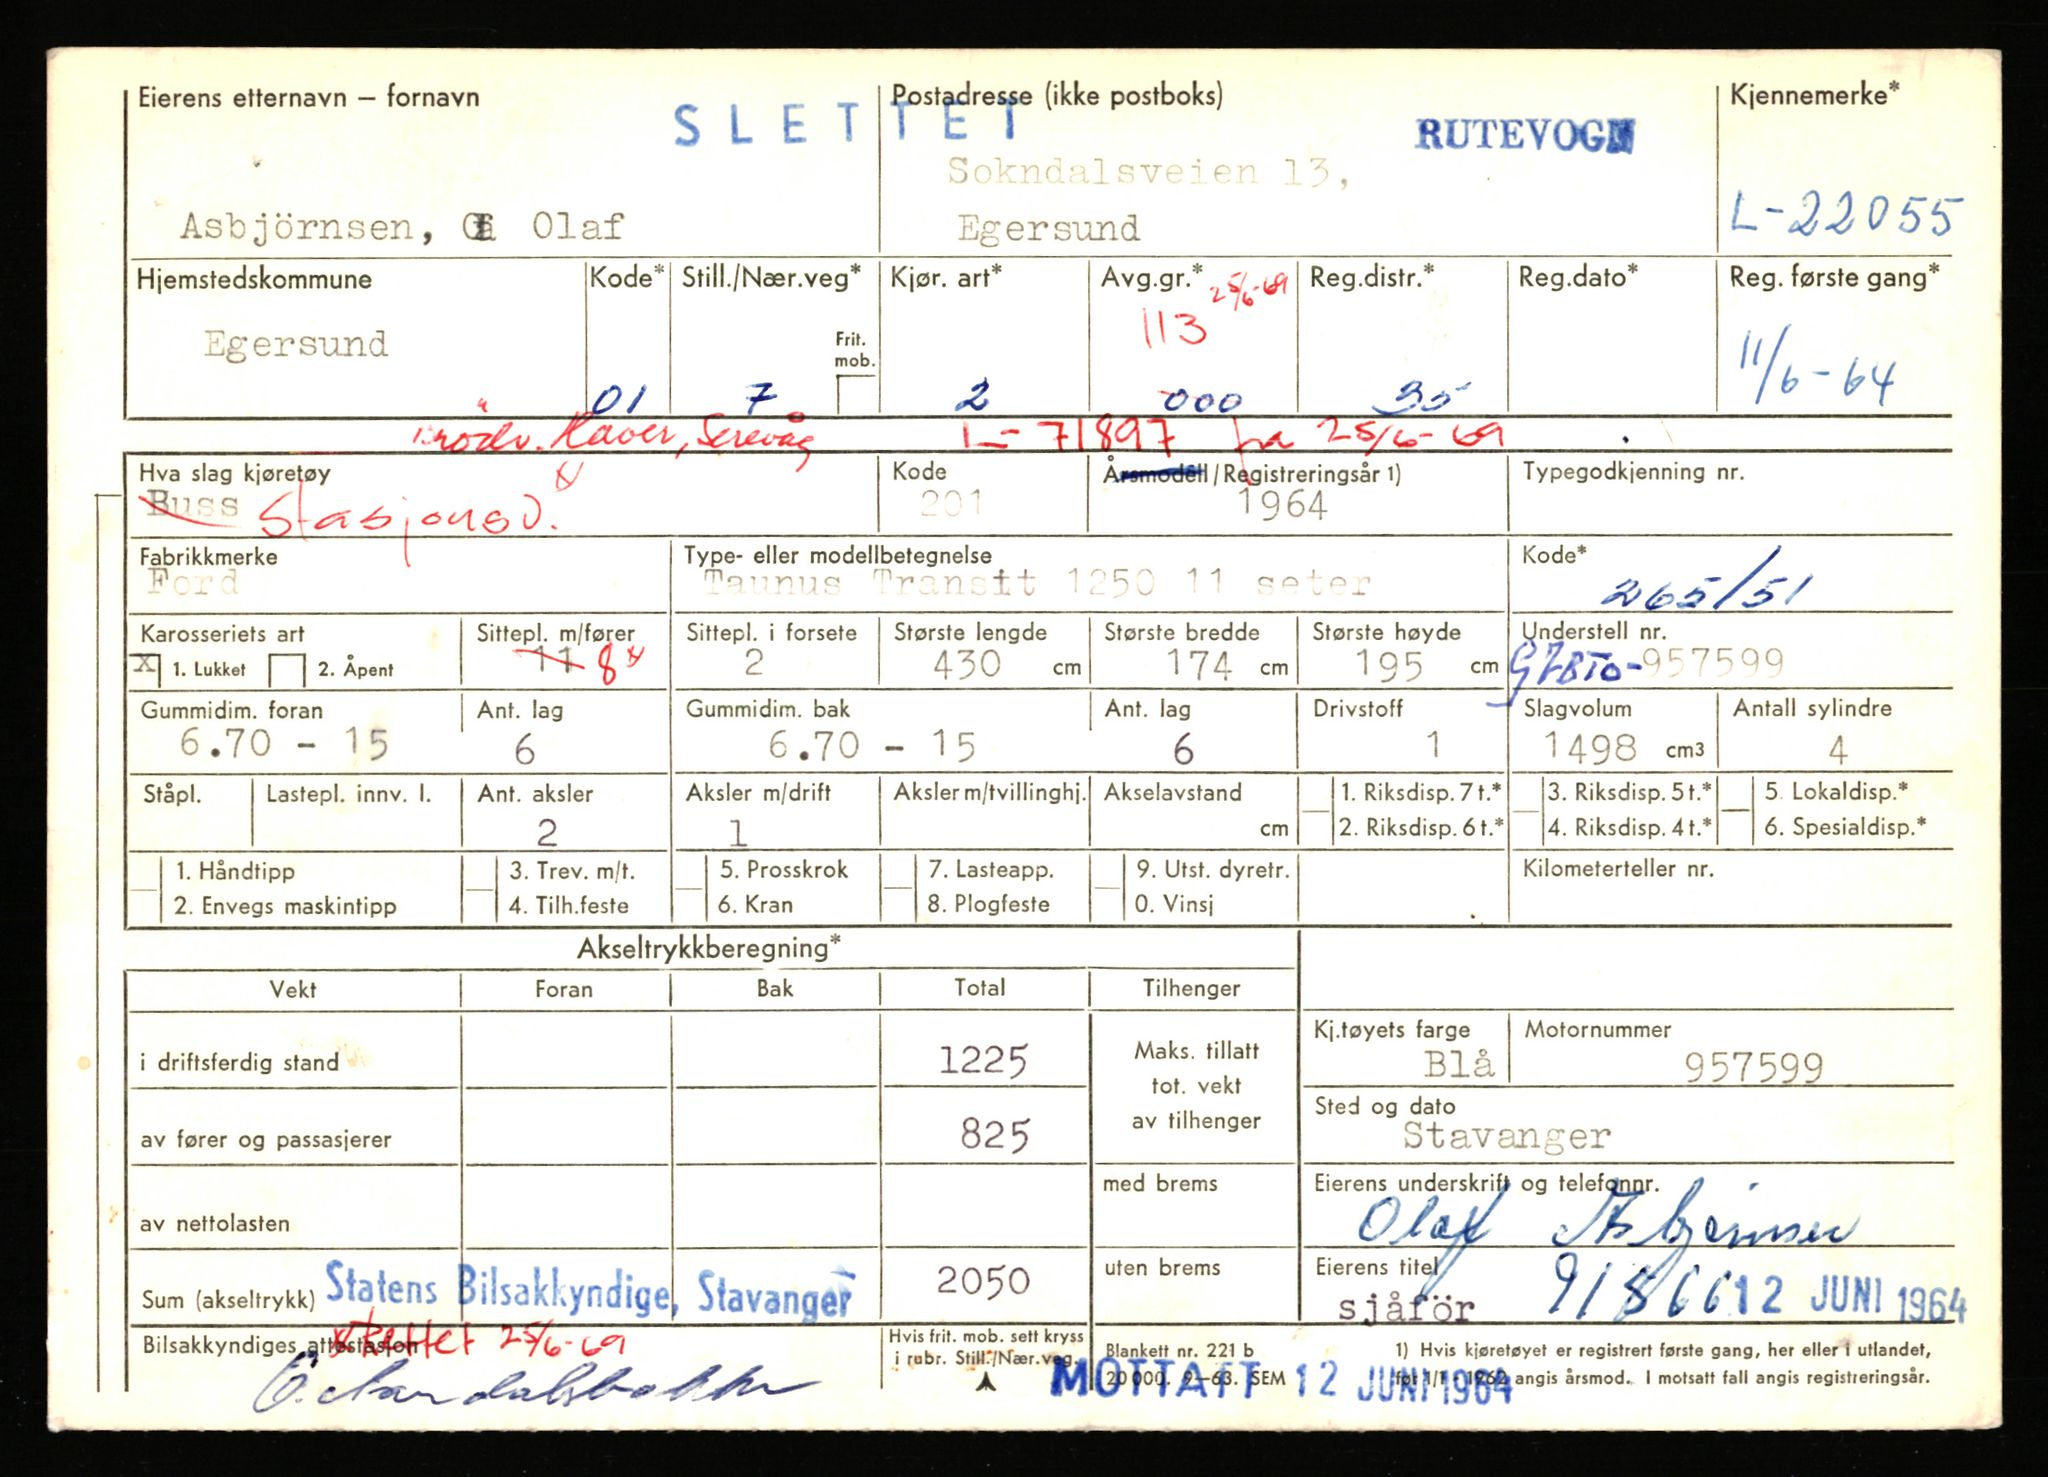 Eierens etternavn – fornavn
SLETTET
Postadresse (ikke postboks)
RUTEVOGN
Kjennemerke*
Sokndalsveien 13,
Asbjörnsen, Olaf
Egersund
L-22055
Hjemstedskommune
Kode*
Still./Nær.veg*
Kjør. art*
Avg.gr.*
25/6-69
Reg.distr.*
Reg.dato*
Reg. første gang*
Egersund
Frit. mob.
113
01
7
2
000
35
11/6-64
L-71897 fra 25/6-69
Hva slag kjøretøy
Kode
Årsmodell/Registreringsår 1)
Typegodkjenning nr.
Buss Stasjonsv.
201
1964
Fabrikkmerke
Type- eller modellbetegnelse
Kode*
Ford
Taunus Transit 1250 11 seter
265/51
Karosseriets art
Sittepl. m/fører
Sittepl. i forsete
Største lengde
Største bredde
Største høyde
Understell nr.
X 1. Lukket 2. Åpent
11 8 x
2
430 cm
174 cm
195 cm
G7BTO-957599
Gummidim. foran
Ant. lag
Gummidim. bak
Ant. lag
Drivstoff
Slagvolum
Antall sylindre
6.70 - 15
6
6.70 - 15
6
1
1498 cm3
4
Ståpl.
Lastepl. innv. l.
Ant. aksler
Aksler m/drift
Aksler m/tvillinghj.
Akselavstand
1. Riksdisp. 7 t.*
3. Riksdisp. 5 t.*
5. Lokaldisp.*
2
1
cm
2. Riksdisp. 6 t.*
4. Riksdisp. 4 t.*
6. Spesialdisp.*
1. Håndtipp
3. Trev. m/t.
5. Prosskrok
7. Lasteapp.
9. Utst. dyretr.
Kilometerteller nr.
2. Envegs maskintipp
4. Tilh.feste
6. Kran
8. Plogfeste
0. Vinsj
Akseltrykkberegning*
Vekt
Foran
Bak
Total
Tilhenger
i driftsferdig stand
1225
Maks. tillatt
tot. vekt
av tilhenger
Kj.tøyets farge
Motornummer
Blå
957599
av fører og passasjerer
825
Sted og dato
Stavanger
av nettolasten
med brems
Eierens underskrift og telefonnr.
Olaf Asbjørnsen
Sum (akseltrykk)
Statens Bilsakkyndige, Stavanger
2050
uten brems
Eierens titel
sjåför
91866
12 JUNI 1964
Bilsakkyndiges attestasjon
x Rettet 25/6-69
Hvis frit. mob. sett kryss
i rubr. Still./Nær.veg.
Blankett nr. 221 b
20 000. 9–63. SEM
1) Hvis kjøretøyet er registrert første gang, her eller i utlandet,
før 1/1 1962 angis årsmod. I motsatt fall angis registreringsår.
MOTTATT 12 JUNI 1964